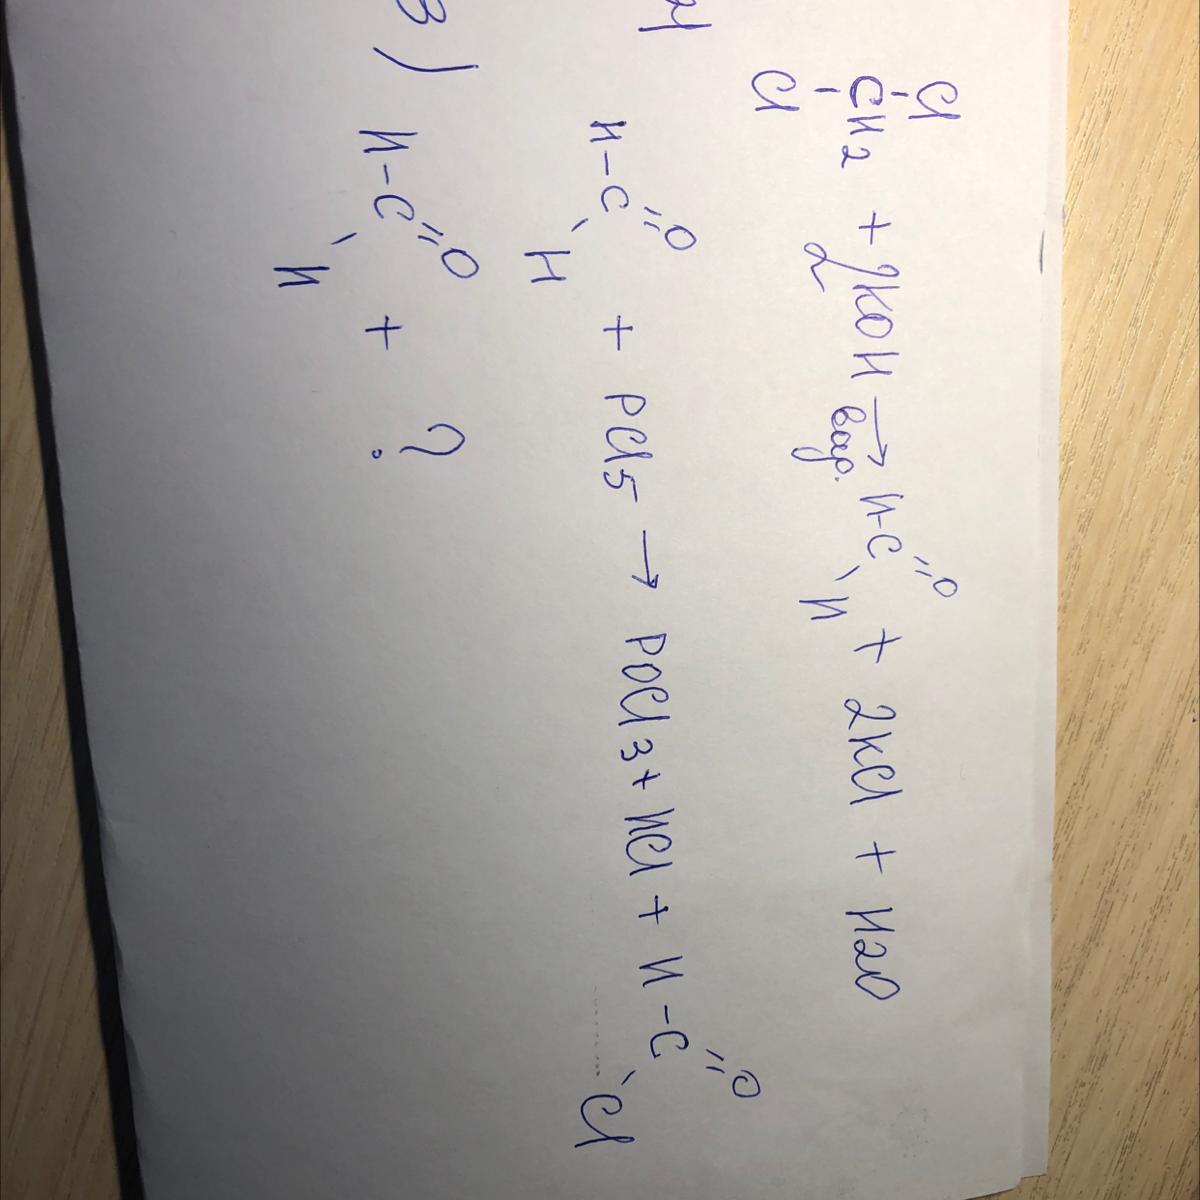 Cl
CH2 + 2KOH → H-C=O + 2KCl + H2O
Cl вод. H
2)
H-C=O + PCl5 → POCl3 + HCl + H-C=O
H Cl
3) H-C=O + ?
H